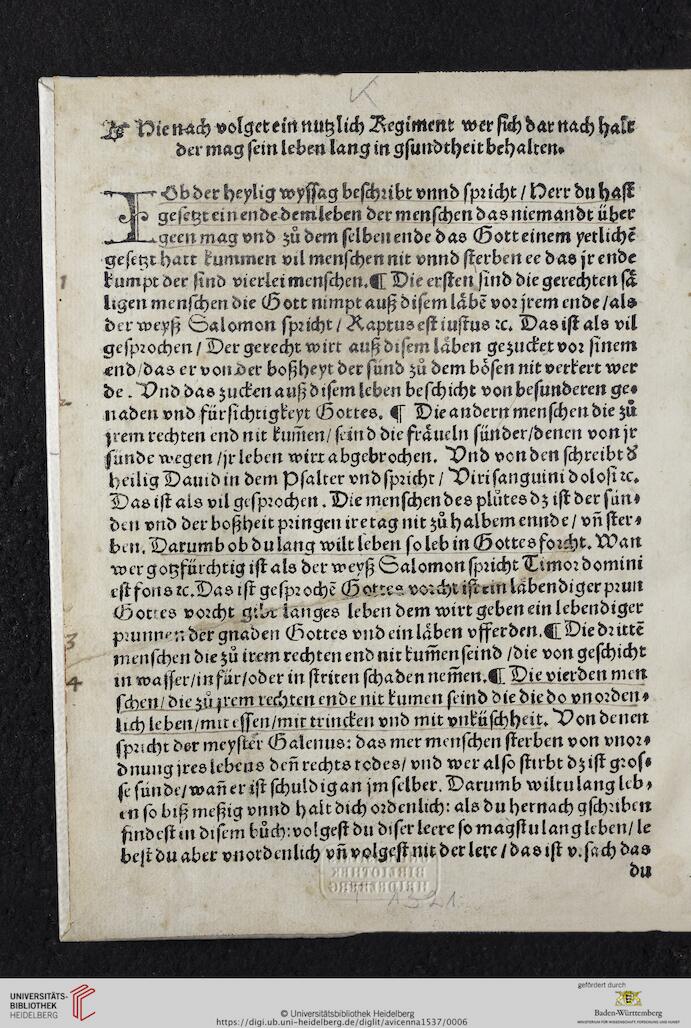 Hie nach volget ein nutzlich Regiment wer sich dar nach halt
der mag sein leben lang in gsundtheit behalten.
IOb der heylig wyssag beschribt vnnd spricht / Herr du hast
gesetzt ein ende dem leben der menschen das niemandt über
geen mag vnd zů dem selben ende das Gott einem yetlichē
gesetzt hatt kummen vil menschen nit vnnd sterben ee das jr ende
1 kumpt der sind vierlei menschen. ¶ Die ersten sind die gerechten sä
ligen menschen die Gott nimpt auß disem läbē vor jrem ende / als
der weyß Salomon spricht / Raptus est iustus ⁊c. Das ist als vil
gesprochen / Der gerecht wirt auß disem läben gezucket vor sinem
end / das er von der boßheyt der sünd zů dem bösen nit verkert wer
2 de. Vnd das zucken auß disem leben beschicht von besunderen ge⸗
naden vnd fürsichtigkeyt Gottes. ¶ Die andern menschen die zů
jrem rechten end nit kum̄en / seind die fräueln sünder / denen von jr
sünde wegen / jr leben wirt abgebrochen. Vnd von den schreibt d̕
heilig Dauid in dem Psalter vnd spricht / Viri sanguini dolosi ⁊c.
Das ist als vil gesprochen. Die menschen des plůtes dz ist der sün⸗
den vnd der boßheit pringen ire tag nit zů halbem ennde / vn̄ ster⸗
ben. Darumb ob du lang wilt leben so leb in Gottes forcht. Wan
wer gotzfürchtig ist als der weyß Salomon spricht Timor domini
est fons ⁊c. Das ist gesprochē Gottes vorcht ist ein läbendiger prun
Gottes vorcht gibt langes leben dem wirt geben ein lebendiger
3 prunnen der gnaden Gottes vnd ein läben vff erden. ¶ Die drittē
menschen die zů irem rechten end nit kum̄en seind / die von geschicht
4 in wasser / in für / oder in striten schaden nem̄en. ¶ Die vierden men
schen / die zů jrem rechten ende nit kumen seind die die do vnorden⸗
lich leben / mit essen / mit trincken vnd mit vnküschheit. Von denen
spricht der meyster Galenus: das mer menschen sterben von vnor⸗
dnung jres lebens den̄ rechts todes / vnd wer also stirbt dz ist gros⸗
se sünde / wan̄ er ist schuldig an jm selber. Darumb wiltu lang leb⸗
en so biß meßig vnnd halt dich ordenlich: als du hernach gschriben
findest in disem bůch: volgest du diser leere so magstu lang leben / le
best du aber vnordenlich vn̄ volgest nit der lere / das ist v. sach das
du
UNIVERSITÄTS-
BIBLIOTHEK
HEIDELBERG
© Universitätsbibliothek Heidelberg
https://digi.ub.uni-heidelberg.de/diglit/avicenna1537/0006
gefördert durch
Baden-Württemberg
MINISTERIUM FÜR WISSENSCHAFT, FORSCHUNG UND KUNST